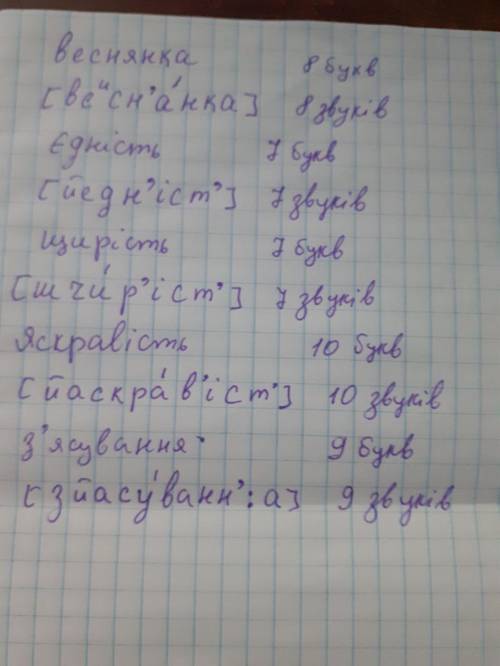 веснянка 8 букв
[ве͏ᴎсн'а́нка] 8 звуків
Єдність 7 букв
[йедн'іст'] 7 звуків
щирість 7 букв
[шчи́р'іст'] 7 звуків
Яскравість 10 букв
[йаскра́в'іст'] 10 звуків
з'ясування 9 букв
[зйасу́ванн':а] 9 звуків